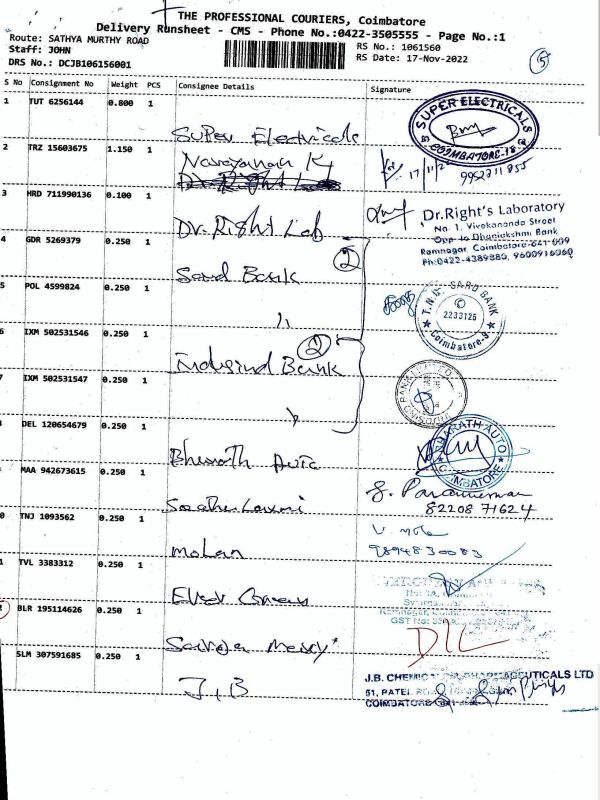 THE PROFESSIONAL COURIERS, Coimbatore
Delivery Runsheet - CMS - Phone No.:0422-3505555 - Page No.:1
Route: SATHYA MURTHY ROAD
Staff: JOHN
DRS No.: DCJB106156001
RS No.: 1061560
RS Date: 17-Nov-2022
5
S No Consignment No Weight PCS Consignee Details Signature
1 TUT 6256144 0.800 1
Super Electricals
SUPER ELECTRICALS
COIMBATORE-18
2 TRZ 15603675 1.150 1
Narayanan K
17/11/2
9952811855
3 HRD 711990136 0.100 1
Dr. Right Lab
Dr.Right's Laboratory
No. 1, Vivekananda Street
Opp to Dhanlakshmi Bank
Ramnagar, Coimbatore-641 009
Ph:0422-4389880, 9600916060
4 GDR 5269379 0.250 1
2
Sard Bank
5 POL 4599824 0.250 1
"
SARD BANK
2233126
Coimbatore-9
6 IXM 502531546 0.250 1
2
Indusind Bank
7 IXM 502531547 0.250 1
"
DEL 120654679 0.250 1
Bharath Auto
BHARATH AUTO
COIMBATORE
MAA 942673615 0.250 1
82208 71624
0 TNJ 1093562 0.250 1
Mohan
9894830083
1 TVL 3383312 0.250 1
GST No:
2 BLR 195114626 0.250 1
SLM 307591685 0.250 1
J.B
J.B. CHEMIC PHARMACEUTICALS LTD
COIMBATORE